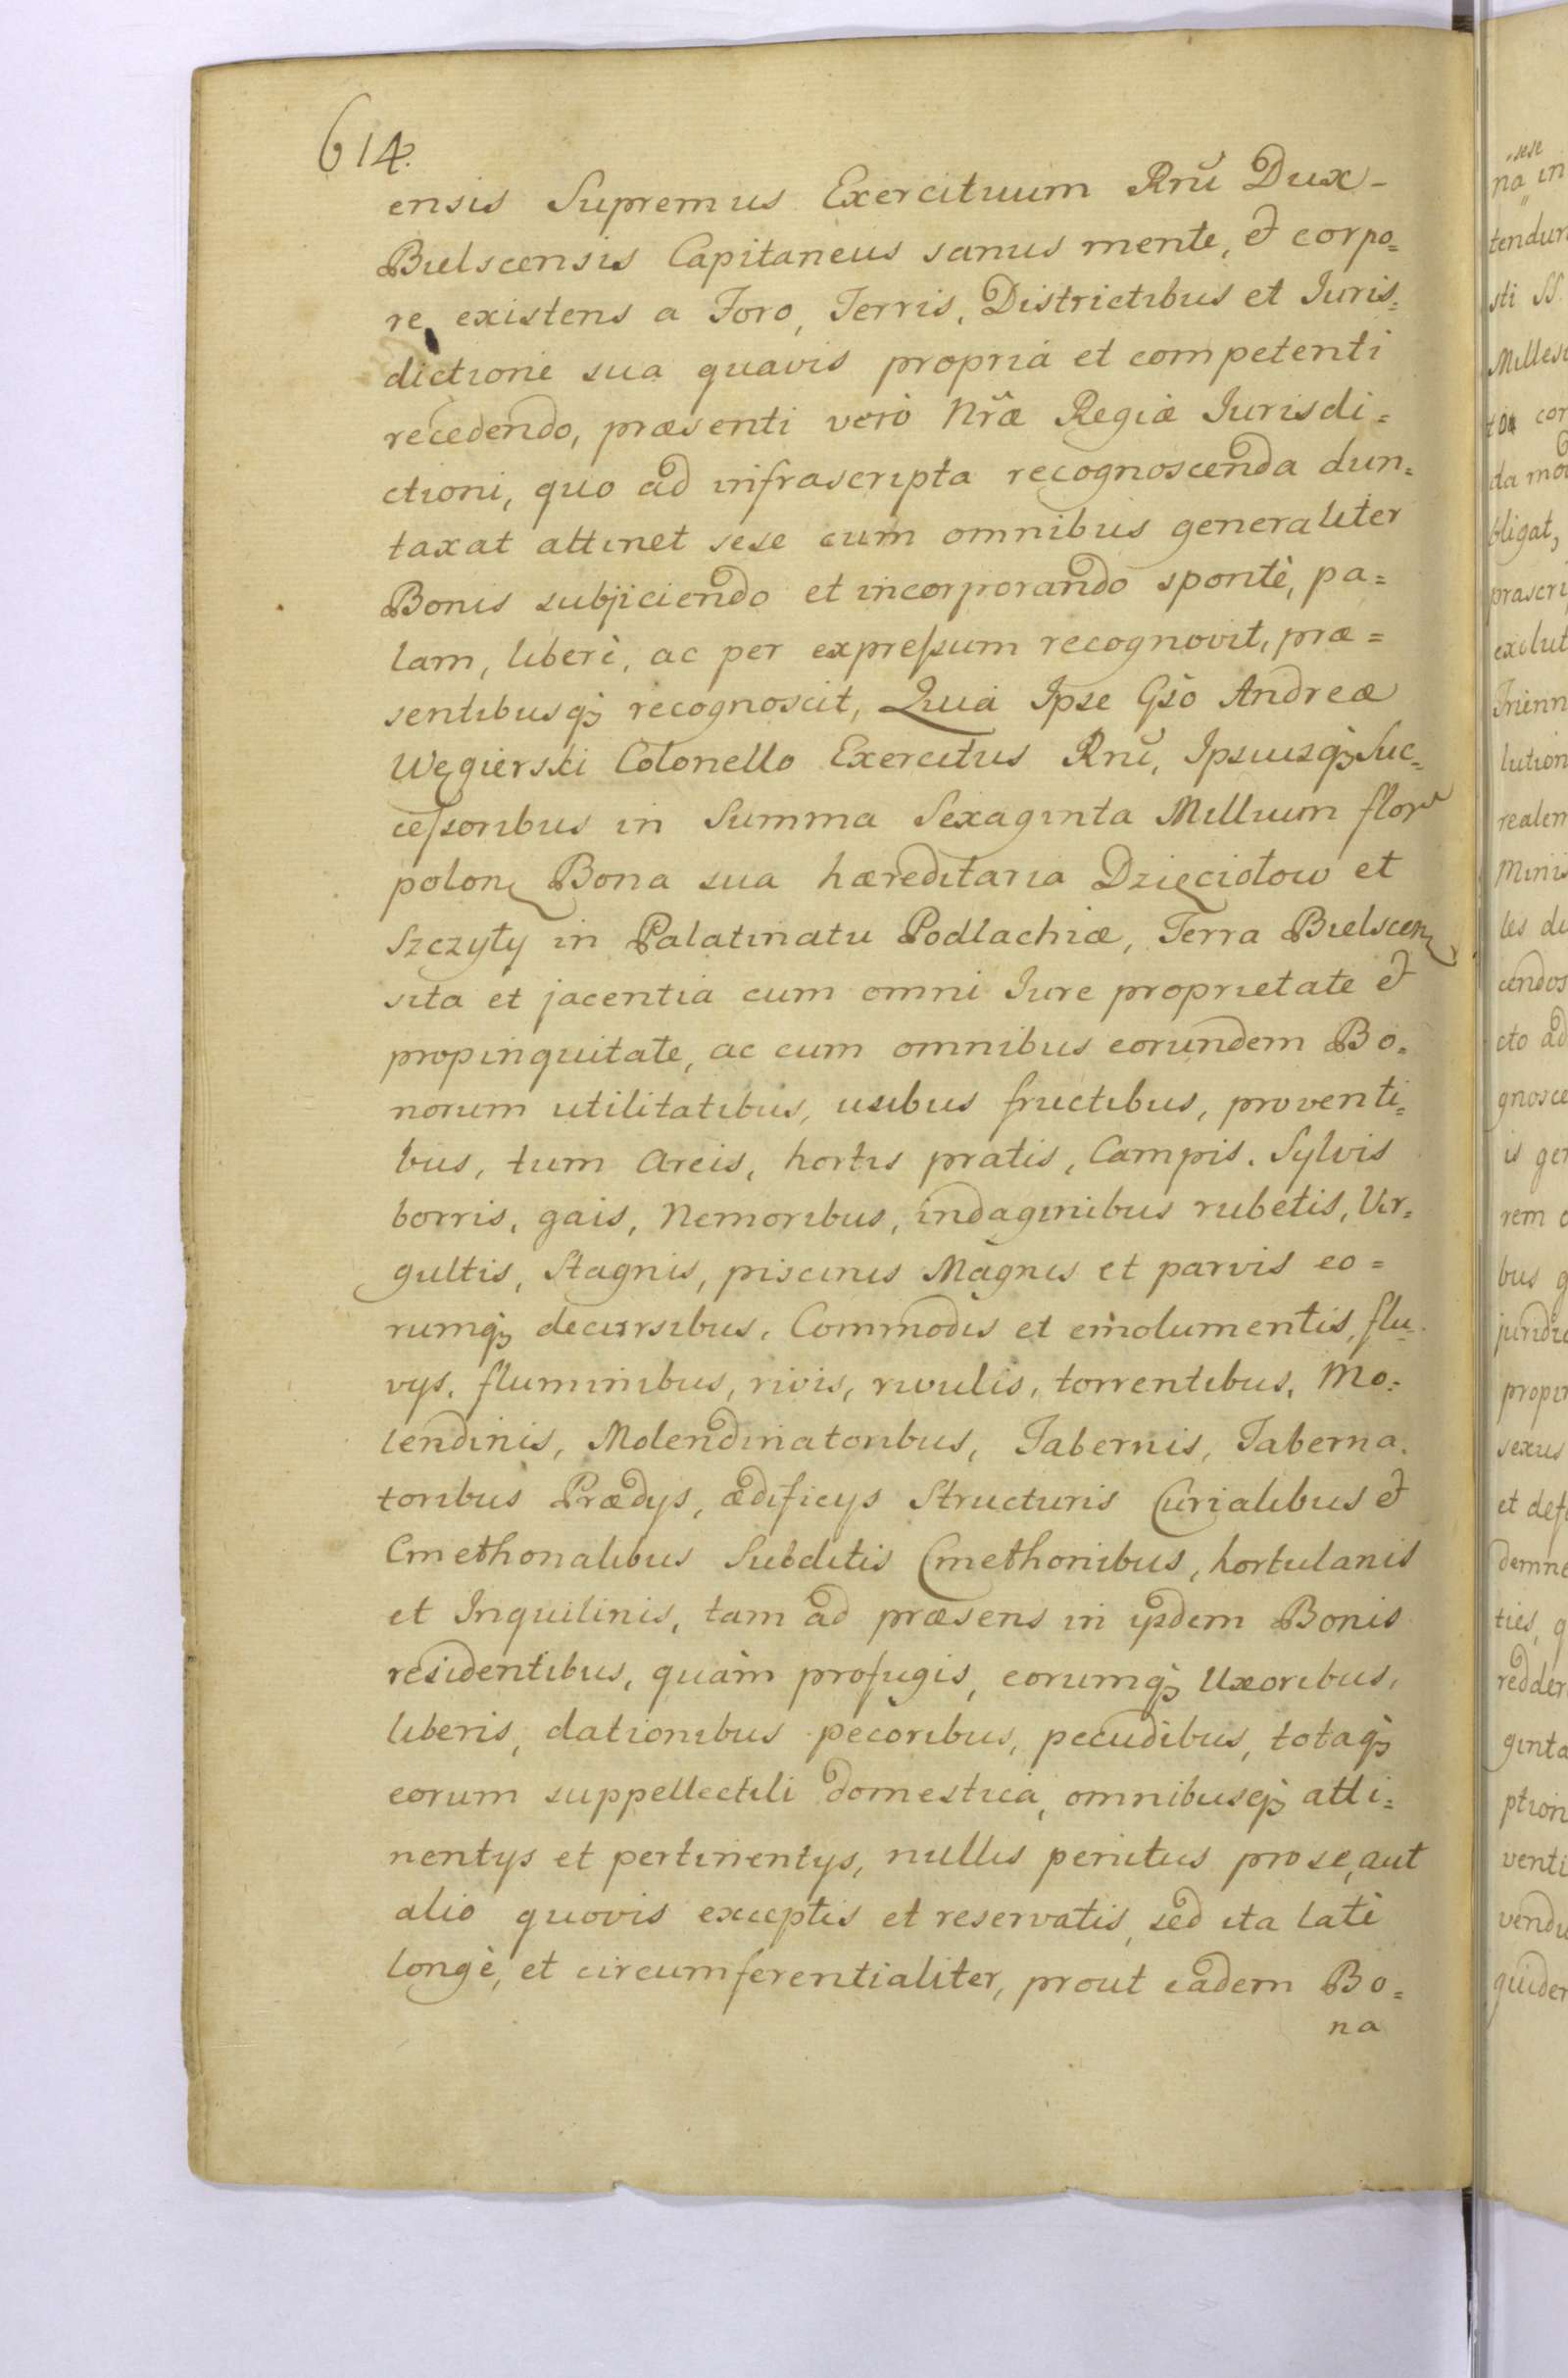 614.
ensis Supremus Exercituum Rnũ Dux-
Bielscensis Capitaneus sanus mente, et corpo=
re, existens a Foro, Terris, Districtibus et Juris=
dictione sua quavis propria et competenti
recedendo, præsenti verò Nræ Regiæ Jurisdi=
ctioni, quo ad infrascripta recognoscenda dun=
taxat attinet sese cum omnibus generaliter
Bonis subjiciendo et incorporando spontè, pa=
lam, liberè, ac per expreſsum recognovit, præ=
sentibusq; recognoscit, Quia Ipse Gso Andreæ
Węgierski Colonello Exercitus Rnũ, Ipsiusq; Suc=
ceſsoribus in Summa Sexaginta Millium flor
polon Bona sua hæreditaria Dzięciołow et
Szczyty in Palatinatu Podlachiæ, Terra Bielscen
sita et jacentia cum omni Jure proprietate et
propinquitate, ac cum omnibus eorundem Bo=
norum utilitatibus, usibus fructibus, proventi=
bus, tum Areis, hortis pratis, Campis. Sylvis
borris, gais, Nemoribus, indaginibus rubetis, Vir=
gultis, Stagnis, piscinis Magnis et parvis eo=
rumq; decursibus, Commodis et emolumentis, flu=
vys, fluminibus, rivis, rivulis, torrentibus, Mo=
lendinis, Molendinatoribus, Tabernis, Taberna=
toribus Prædys, ædificys Structuris Curialibus et
Cmethonalibus Subditis Cmethonibus, hortulanis
et Inquilinis, tam ad præsens in ysdem Bonis
residentibus, quàm profugis, eorumq; Uxoribus,
liberis, dationibus pecoribus, pecudibus, totaq;
eorum suppellectili domestica, omnibusq; atti=
nentys et pertinentys, nullis penitus pro se, aut
alio quovis exceptis et reservatis, sed ita latè
longè, et circumferentialiter, prout eadem Bo=
na